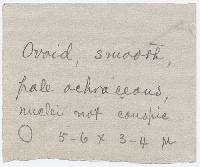 Ovoid, smooth,
pale ochraceous,
nuclei not conspic
5-6 x 3-4 µ